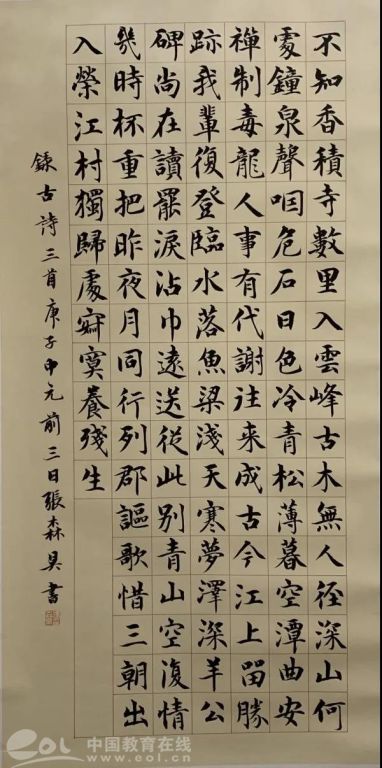 不知香積寺數里入雲峰古木無人徑深山何
處鐘泉聲咽危石日色冷青松薄暮空潭曲安
禪制毒龍人事有代謝往来成古今江上留勝
跡我輩復登臨水落魚梁淺天寒夢澤深羊公
碑尚在讀罷淚沾巾遠送從此別青山空復情
幾時杯重把昨夜月同行列郡謳歌惜三朝出
入榮江村獨歸處寂寞養殘生
録古詩三首庚子中元前三日張森書
eol 中国教育在线
www.eol.cn